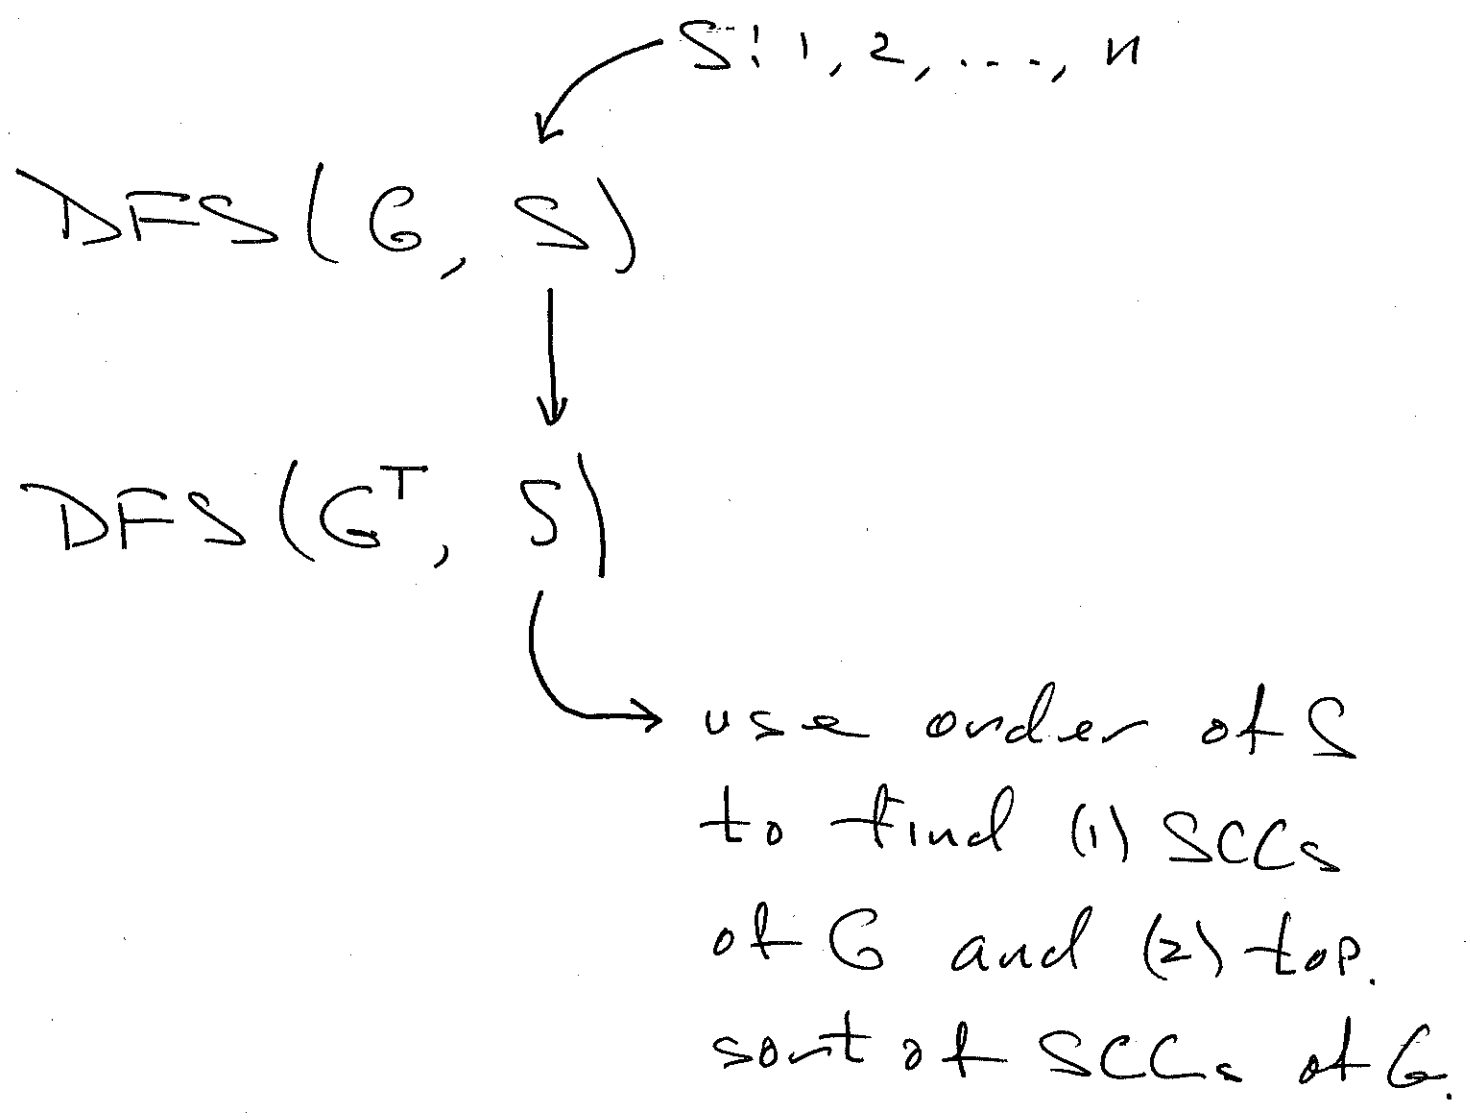 S: 1, 2, ..., n
DFS(G, S)
DFS(G^T, S)
use order of S
to find (1) SCCs
of G and (2) top.
sort of SCCs of G.